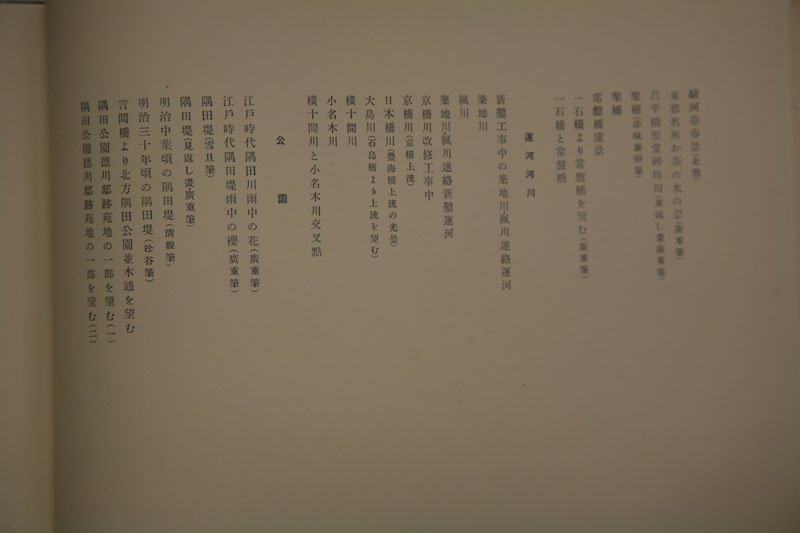 駿河臺春景(北壽)
東都名所お茶の水の景(廣重筆)
昌平橋聖堂神田川(見返し畫廣重筆)
聖橋(赤城泰舒筆)
聖橋
常盤橋遠景
一石橋より常盤橋を望む(廣重筆)
一石橋と常盤橋
運河河川
新鑿工事中の築地川楓川連絡運河
築地川
楓川
築地川楓川連絡新鑿運河
京橋川改修工事中
京橋川(京橋上流)
日本橋川(豊海橋上流の光景)
大島川(石島橋より上流を望む)
橫十間川
小名木川
橫十間川と小名木川交叉點
公園
江戸時代隅田川雨中の花(廣重筆)
江戸時代隅田堤雨中の櫻(廣重筆)
隅田堤(雪旦筆)
隅田堤(見返し畫廣重筆)
明治中葉頃の隅田堤(清親筆)
明治三十年頃の隅田堤(松谷筆)
言問橋より北方隅田公園並木通を望む
隅田公園德川邸跡苑地の一部を望む(一)
隅田公園德川邸跡苑地の一部を望む(二)